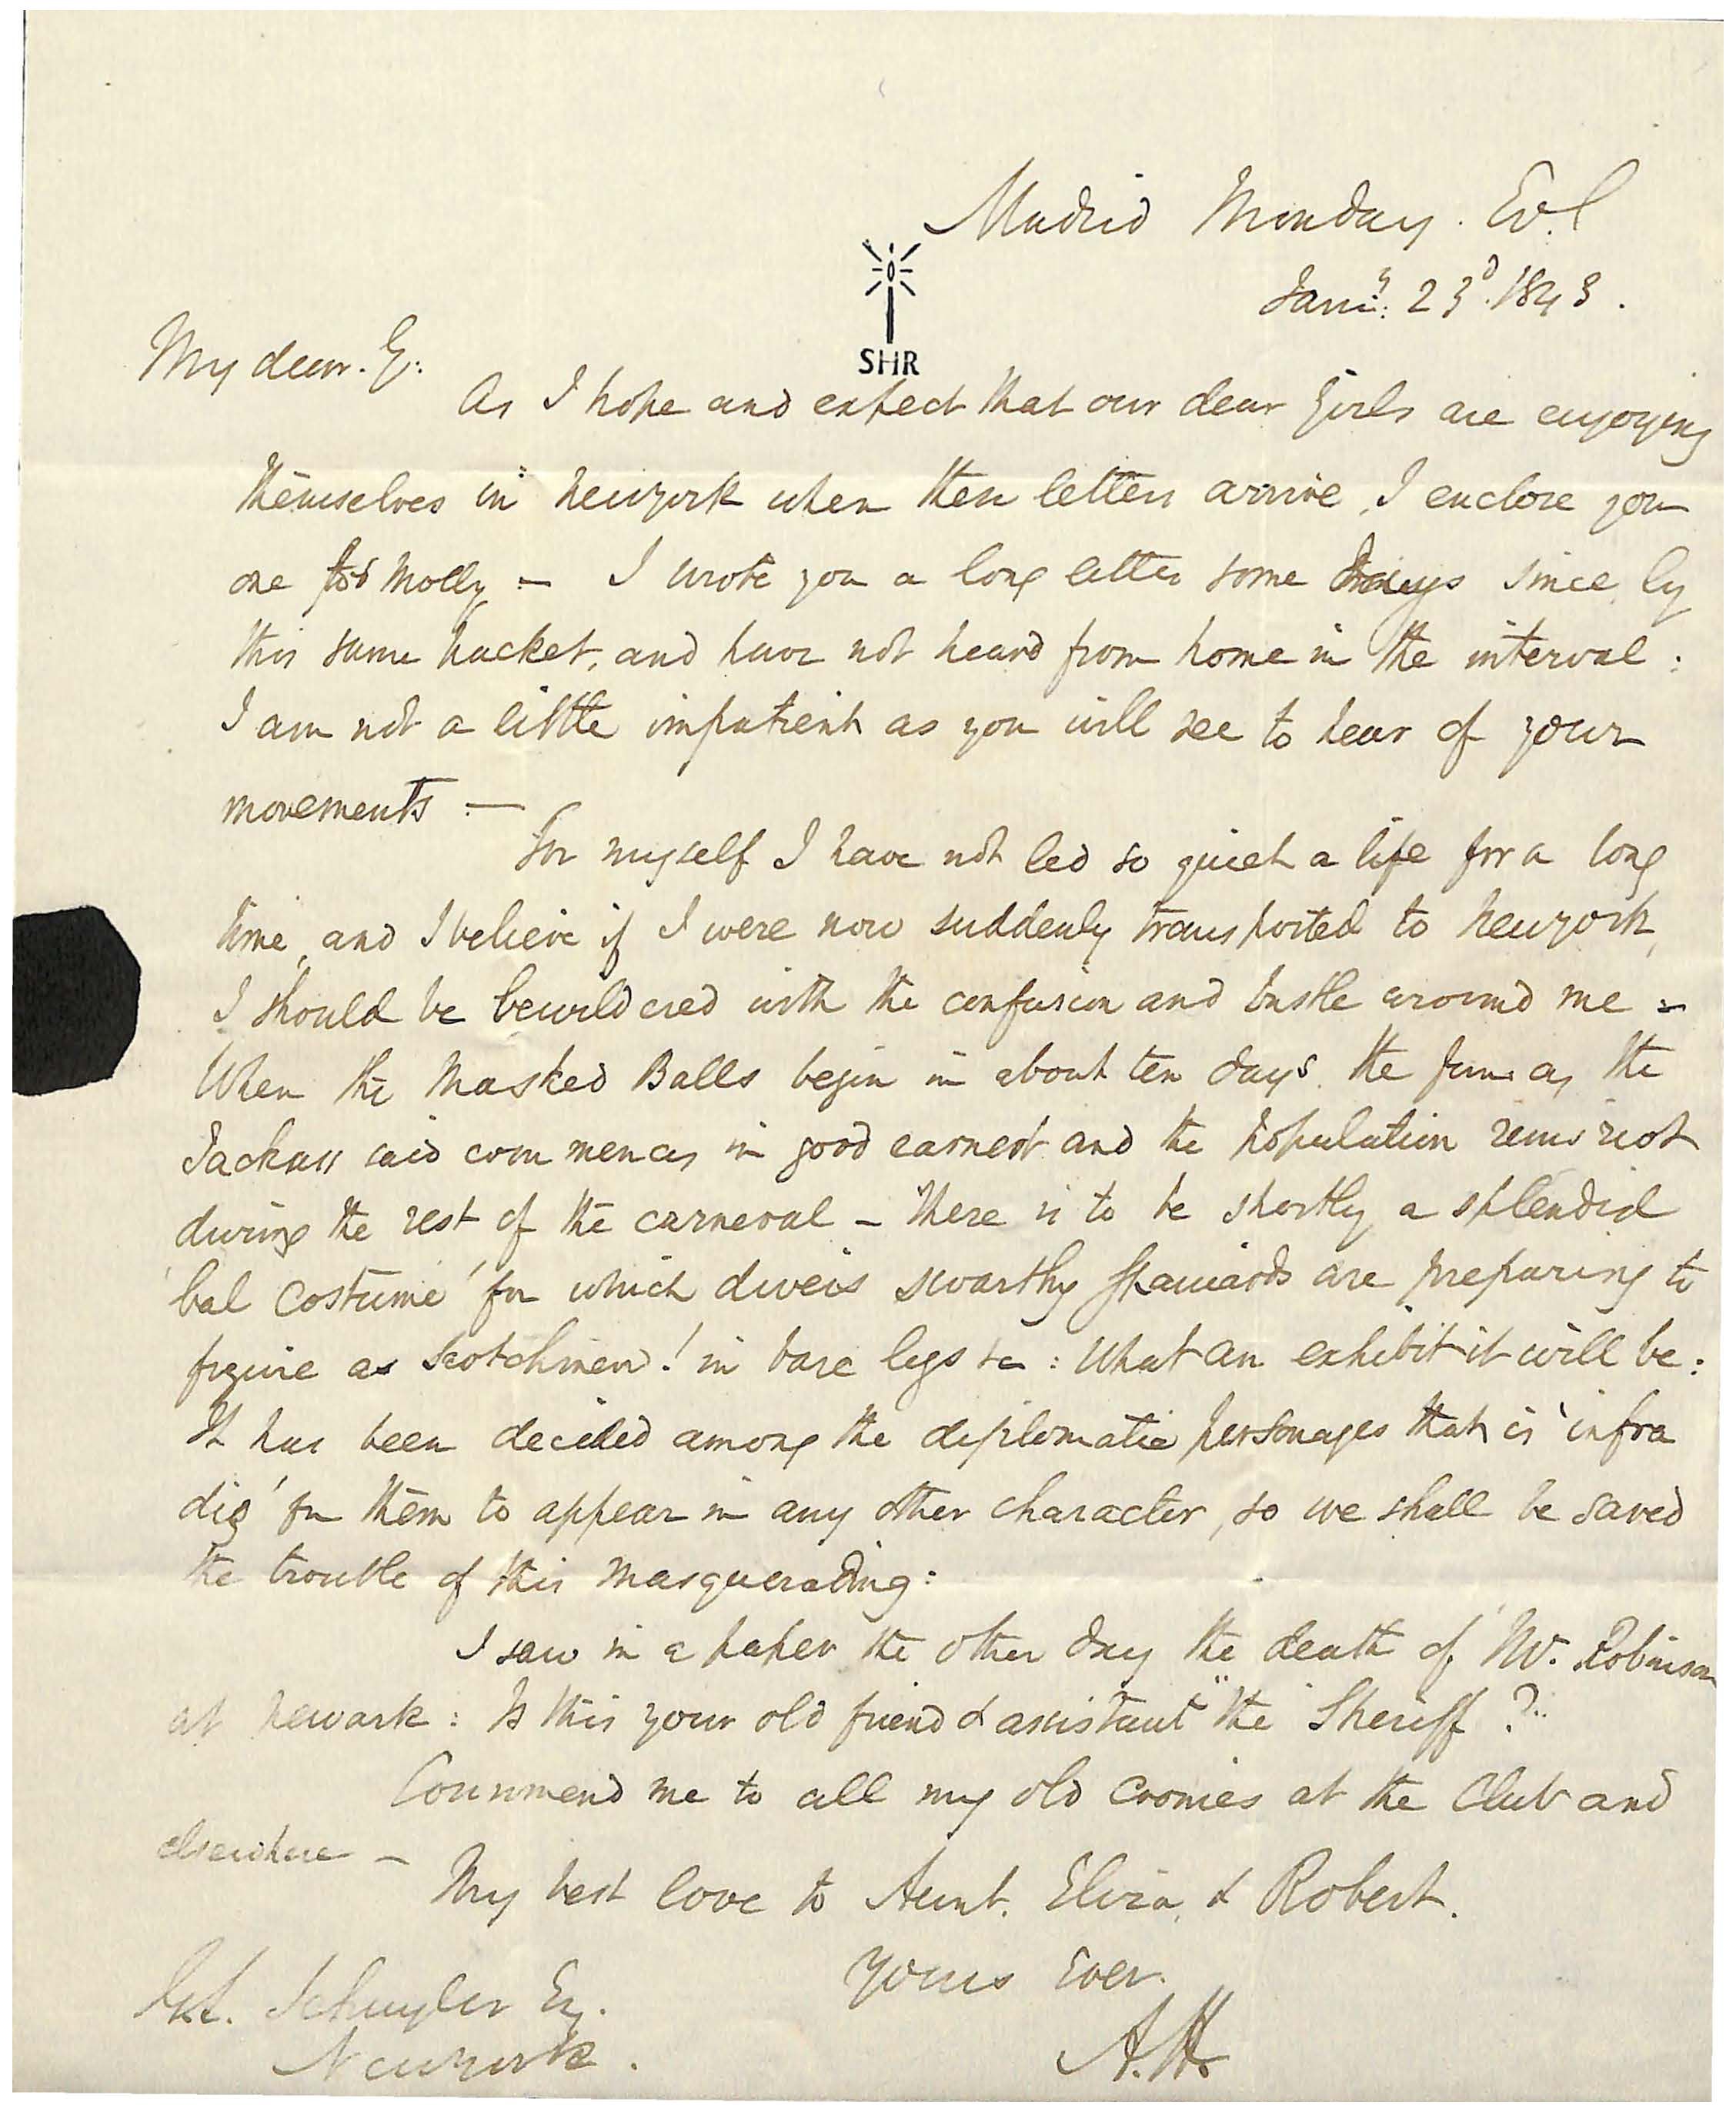 Madrid Monday. Ev.l
Jany: 23d. 1843.
SHR
My dear G:
As I hope and expect that our dear Girls are enjoying
themselves in Newyork when these letters arrive, I enclose you
one for Molly – I wrote you a long letter some days since by
this same packet, and have not heard from home in the interval:
I am not a little impatient as you will see to hear of your
movements –
For myself I have not led so quiet a life for a long
time, and I believe if I were now suddenly transported to Newyork,
I should be bewildered with the confusion and bustle around me –
When the Masked Balls begin in about ten days, the fun as the
Jackass said commences in good earnest and the population runs riot
during the rest of the carneval – There is to be shortly a splendid
'bal costumé' for which divers swarthy Spaniards are preparing to
figure as Scotchmen! in bare legs &c: What an exhibit it will be:
It has been decided among the diplomatic personages that is 'infra
dig' for them to appear in any other character, so we shall be saved
the trouble of this masquerading:
I saw in a paper the other day the death of Mr. Robinson
at Newark: Is this your old friend & assistant "the Sheriff?"
Commend me to all my old cronies at the Club and
elsewhere –
My best love to Aunt, Eliza, & Robert.
Yours Ever.
A.H.
G.L. Schuyler Eq.
Newyork.